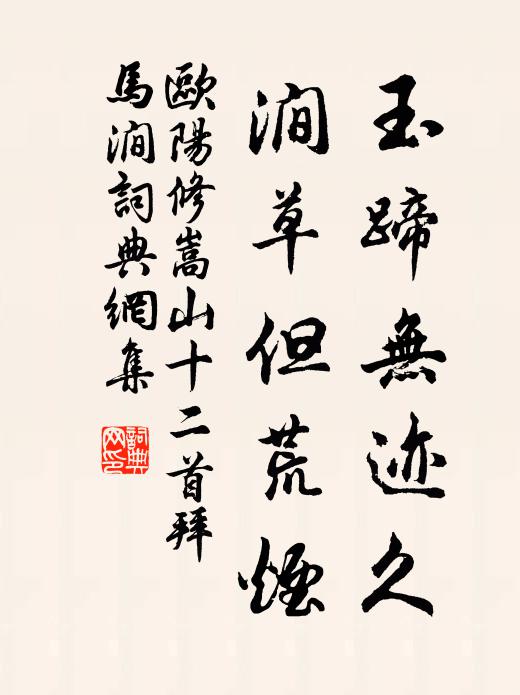 玉蹄無迹久
澗草但荒煙
歐陽修嵩山十二首拜
馬澗詞典網集
詞典
网印